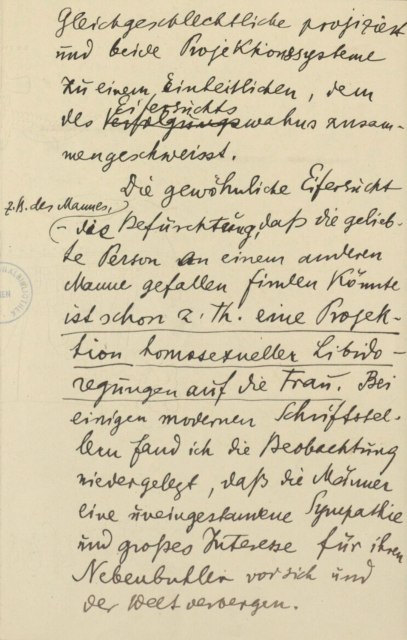 Gleichgeschlechtliche projiziert
und beide Projektionssysteme
zu einem Einheitlichen, dem
Eifersuchts
des Verfolgungswahns zusam-
mengeschweisst.
Die gewöhnliche Eifersucht
z.B. des Mannes,
– die Befürchtung, daß die gelieb-
te Person an einem anderen
Manne gefallen finden könnte
ist schon z. Th. eine Projek-
tion homosexueller Libido-
regungen auf die Frau. Bei
einigen modernen Schriftstel-
lern fand ich die Beobachtung
niedergelegt, daß die Männer
eine uneingestandene Sympathie
und großes Interesse für ihren
Nebenbuhler vor sich und
der Welt verbergen.